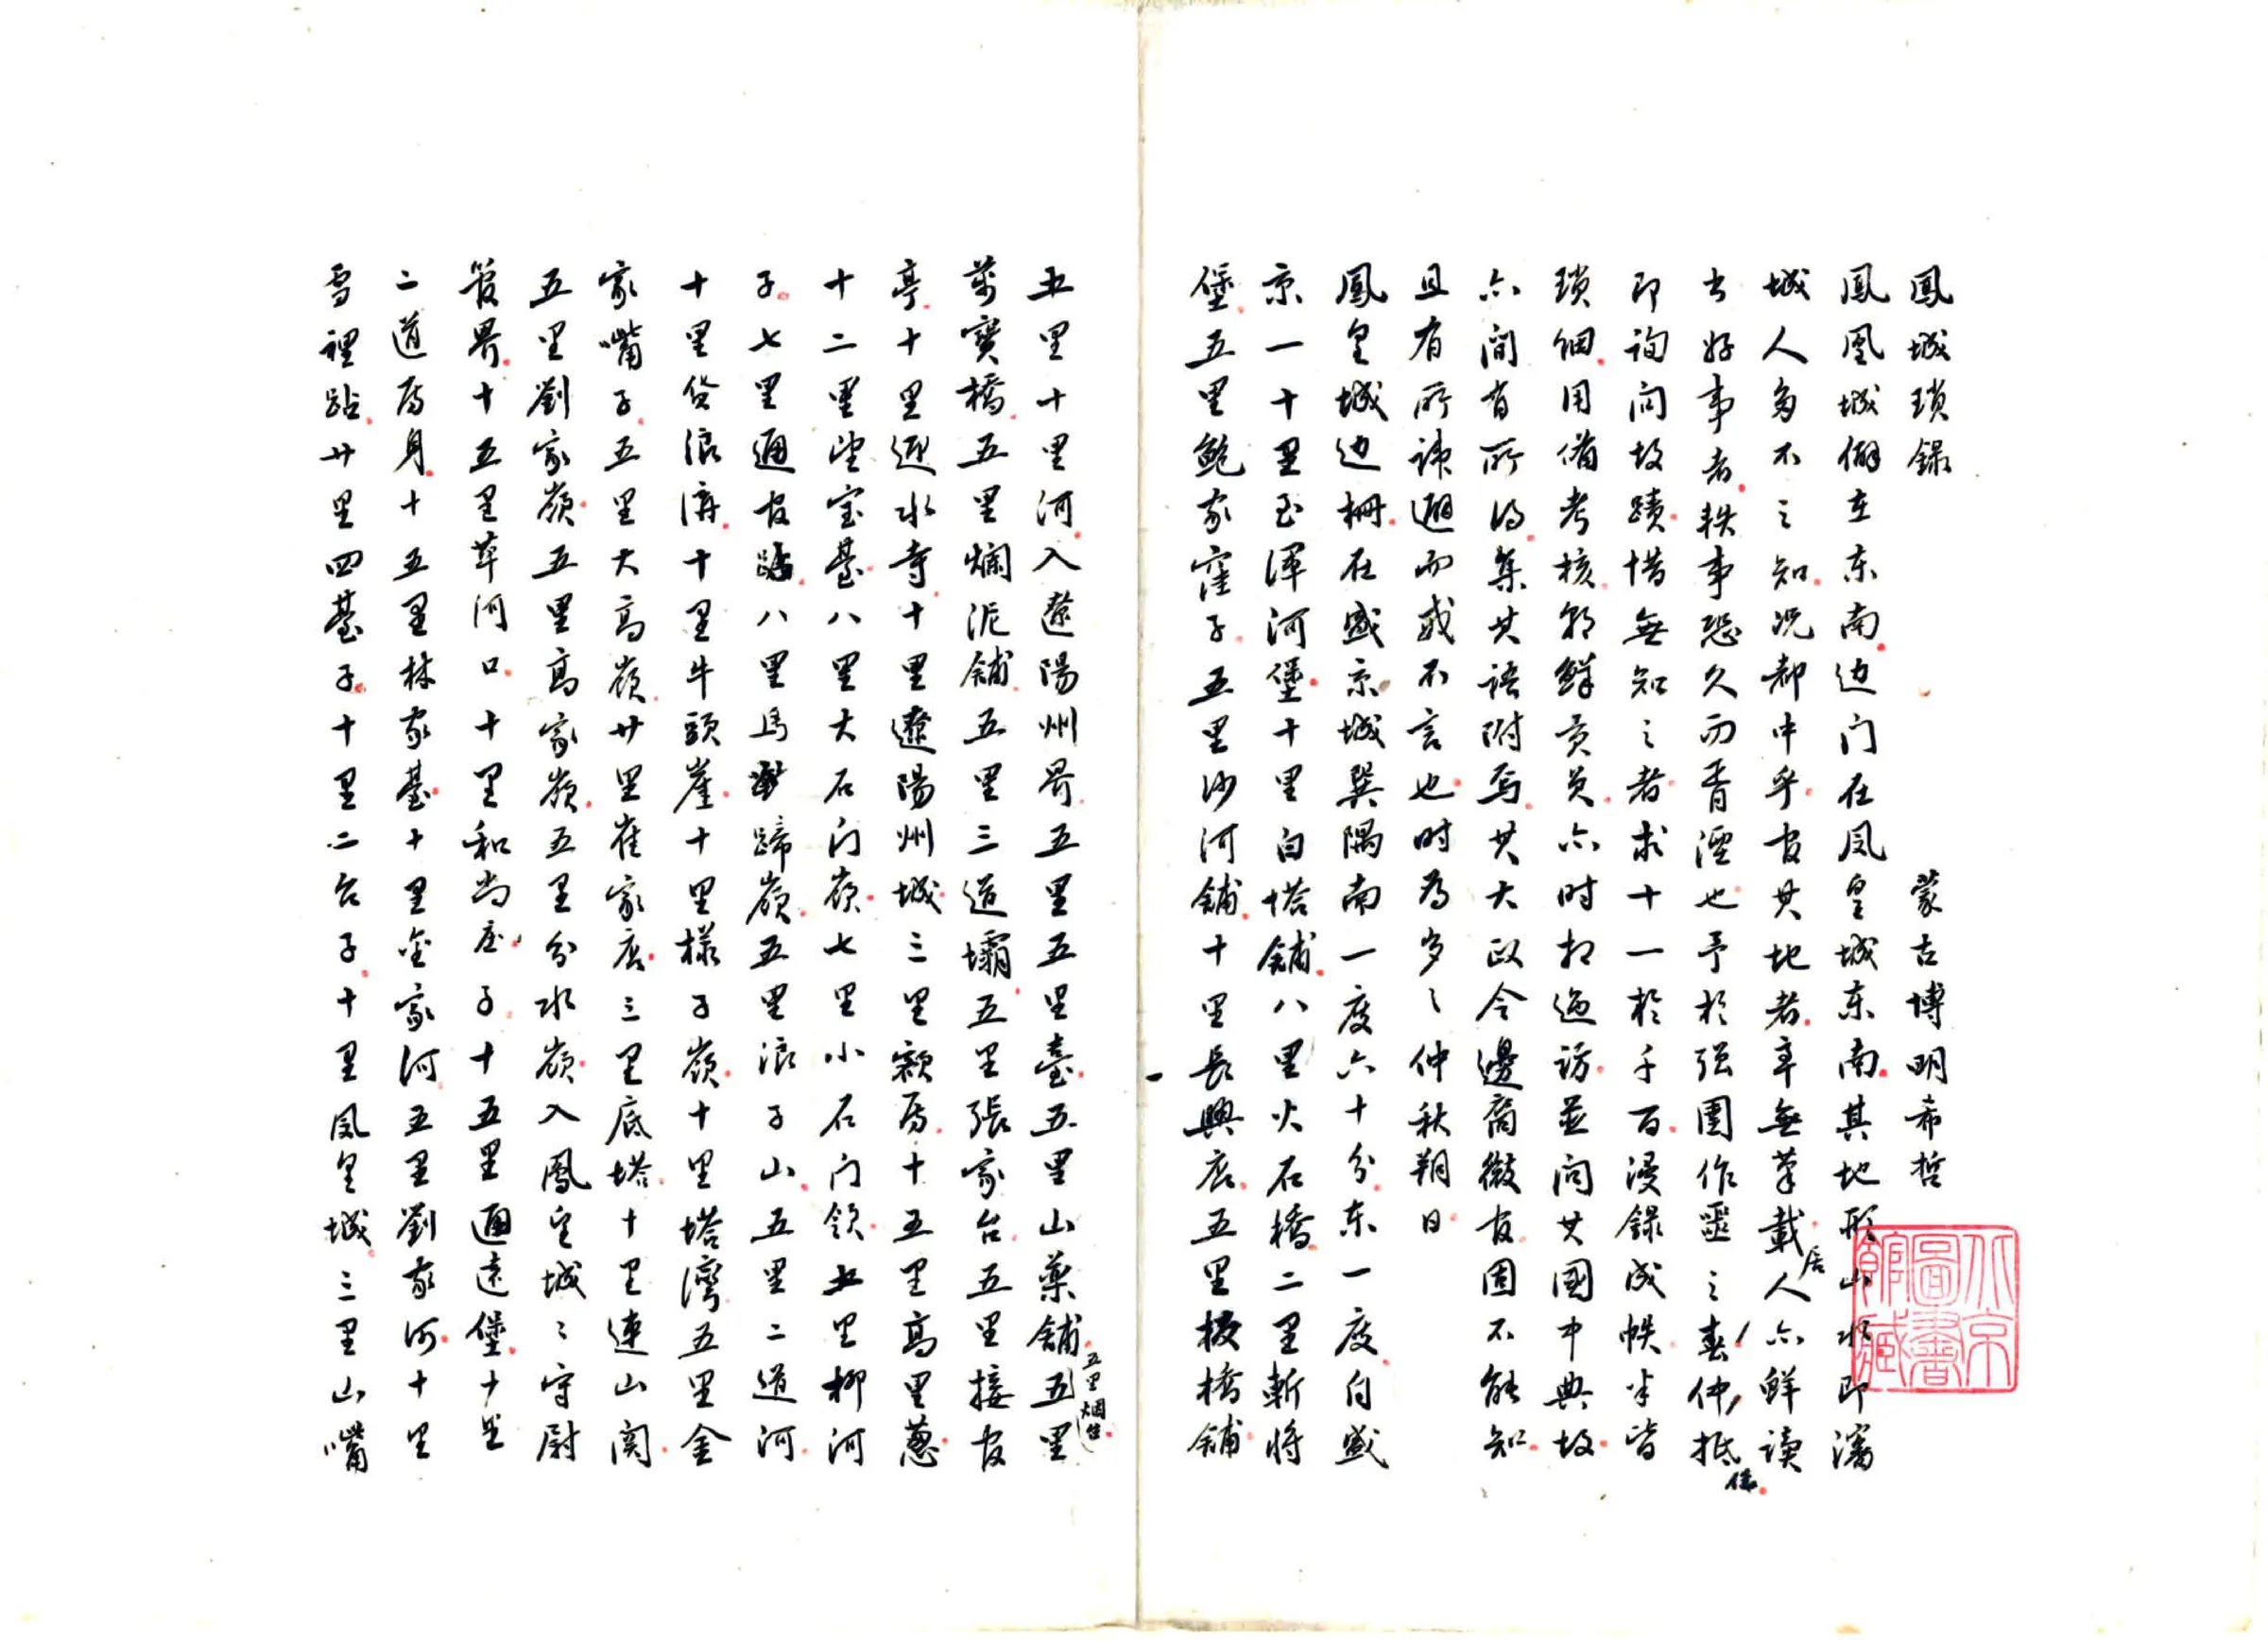 鳳城瑣録
蒙古博明希哲
鳳凰城僻在东南边门在凤皇城东南其地形山水即瀋
城人多不之知况都中乎官其地者率無筆載居人亦鮮读
书好事者軼事恐久而胥湮也予於强圉作噩之春仲抵任
即詢问故蹟惜無知之者求十一於千百漫錄成帙半皆
瑣细用備考核朝鲜贡员亦时相过访並问其國中典故
亦间有所得集其语附焉其大政令邊裔微官固不能知
且有所諱避而或不言也时为岁之仲秋朔日
鳳皇城边栅在盛京城巽隅南一度六十分东一度自盛
京一十里至渾河堡十里白塔鋪八里火石橋二里斬将
堡五里鲍家窪子五里沙河鋪十里長興店五里板橋鋪
五里十里河入遼陽州界五里五里臺五里山藥鋪五里五里烟台
萬寶橋五里爛泥鋪五里三道壩五里張家台五里接官
亭十里迎水寺十里遼陽州城三里額房十五里高里蔥
十二里望宝臺八里大石门嶺七里小石门领五里柳河
子七里通官站八里馬蹄嶺五里浪子山五里二道河
十里货浪溝十里牛頭崖十里樣子嶺十里塔灣五里金
家嘴子五里大高嶺廿里崔家店三里底塔十里連山関
五里劉家嶺五里高家嶺五里分水嶺入鳳皇城〻守尉
管界十五里草河口十里和尚庄子十五里通遠堡十里
二道房身十五里林家臺十里金家河五里劉家河十里
雪裡站廿里四臺子十里二台子十里凤皇城三里山嘴
北京圖書館藏